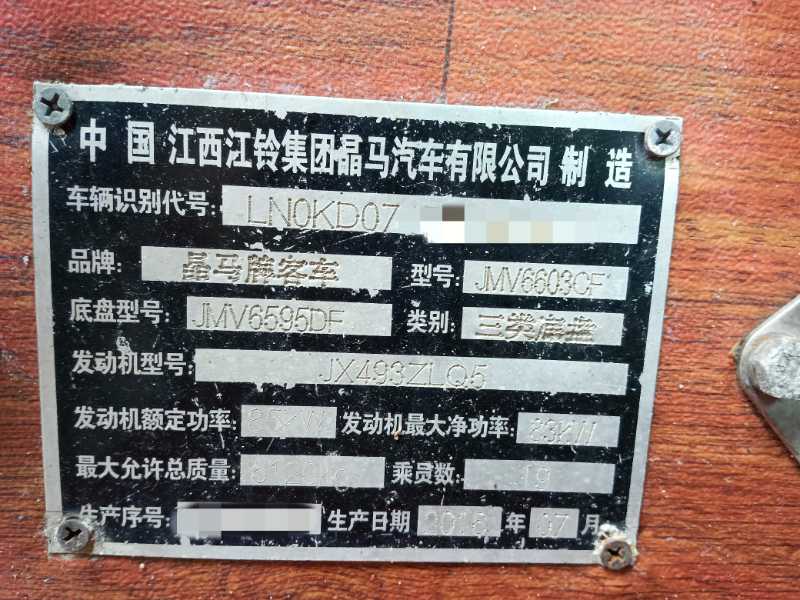 中国江西江铃集团晶马汽车有限公司制造
车辆识别代号: LN0KD07
品牌: 晶马牌客车 型号: JMV6603CF
底盘型号: JMV6595DF 类别: 三类底盘
发动机型号: JX493ZLQ5
发动机额定功率: 85KW 发动机最大净功率: 83KW
最大允许总质量: 乘员数: 19
生产序号: 生产日期 2016 年 07 月